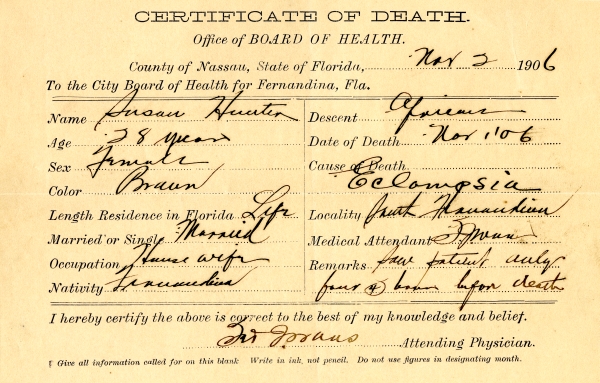 CERTIFICATE OF DEATH.
Office of BOARD OF HEALTH.
County of Nassau, State of Florida, Nov 2 1906
To the City Board of Health for Fernandina, Fla.
Name Susan Hunter
Age 28 years
Sex Female
Color Braun
Length Residence in Florida Life
Married or Single Married
Occupation House wife
Nativity Fernandina
Descent African
Date of Death Nov 1 '06
Cause of Death
Eclampsia
Locality South Fernandina
Medical Attendant
Remarks Saw patient only
four (4) hours before death
I hereby certify the above is correct to the best of my knowledge and belief.
Attending Physician.
¶ Give all information called for on this blank Write in ink, not pencil. Do not use figures in designating month.